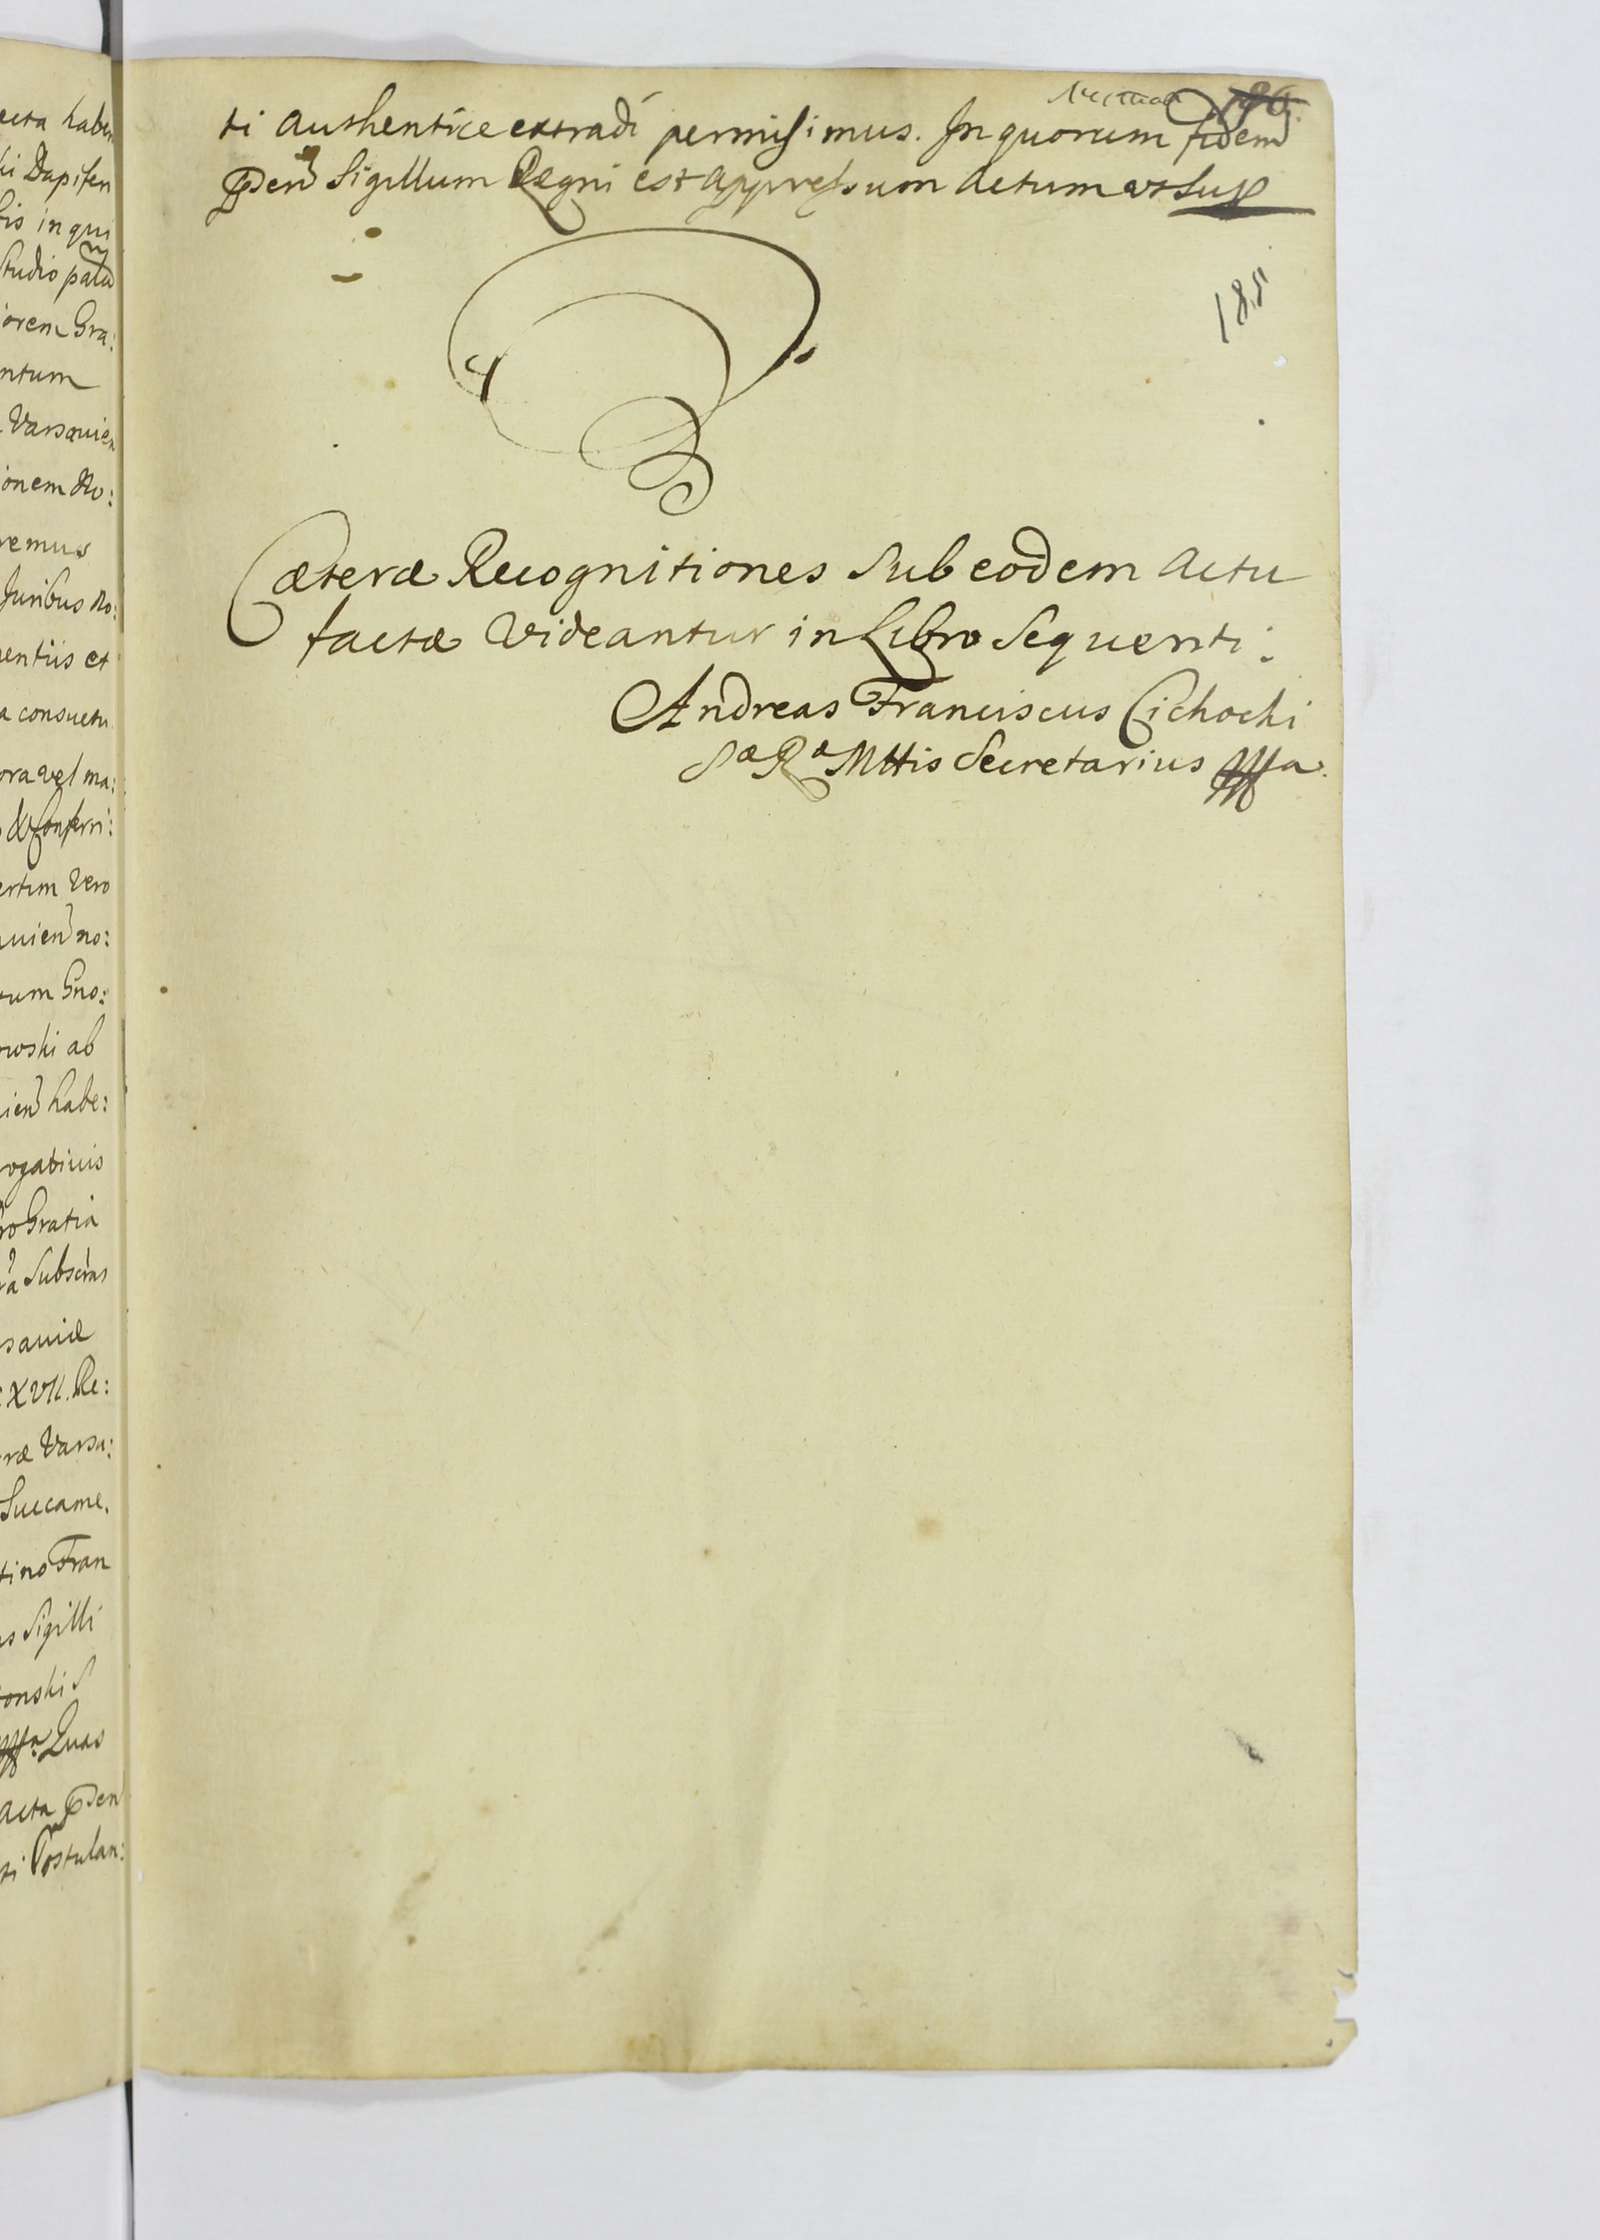 ecta haben
ki Dapifen
fis in qui
Studio palā
iorem Gra:
ntum
Varsavien
ionem No:
remus
Juribus no:
entiis et
a consuetu
ora vel ma:
ertim vero
uien no:
rum Gno:
rwski ab
ien habe:
rogativis
ro Gratia
ra Subscras
saviæ
XVII. Re:
ræ Varsa:
Succame.
tino Fran
s Sigilli
onski S
mppa Quas
acta pden
ti Postulan:
186.
ti authentice extradi permisimus. In quorum fidem
pden Sigillum Regni est appressum Actum ut Sup
185
Cæteræ Recognitiones Sub eodem Actu
factæ Videantur in Libro Sequenti.
Andreas Franciscus Cichocki
Sæ Ræ Mttis Secretarius mppa.